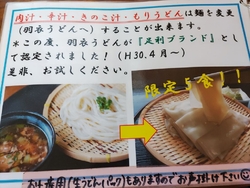 肉汁・辛汁・きのこ汁・もりうどんは麺を変更
(羽衣うどんへ)することが出来ます。
*この度、羽衣うどんが『足利ブランド』とし
て認定されました!(H30.4月~)
是非、お試しください。
限定5食!!
お土産用(生うどんパック)もありますのでお声掛け下さい